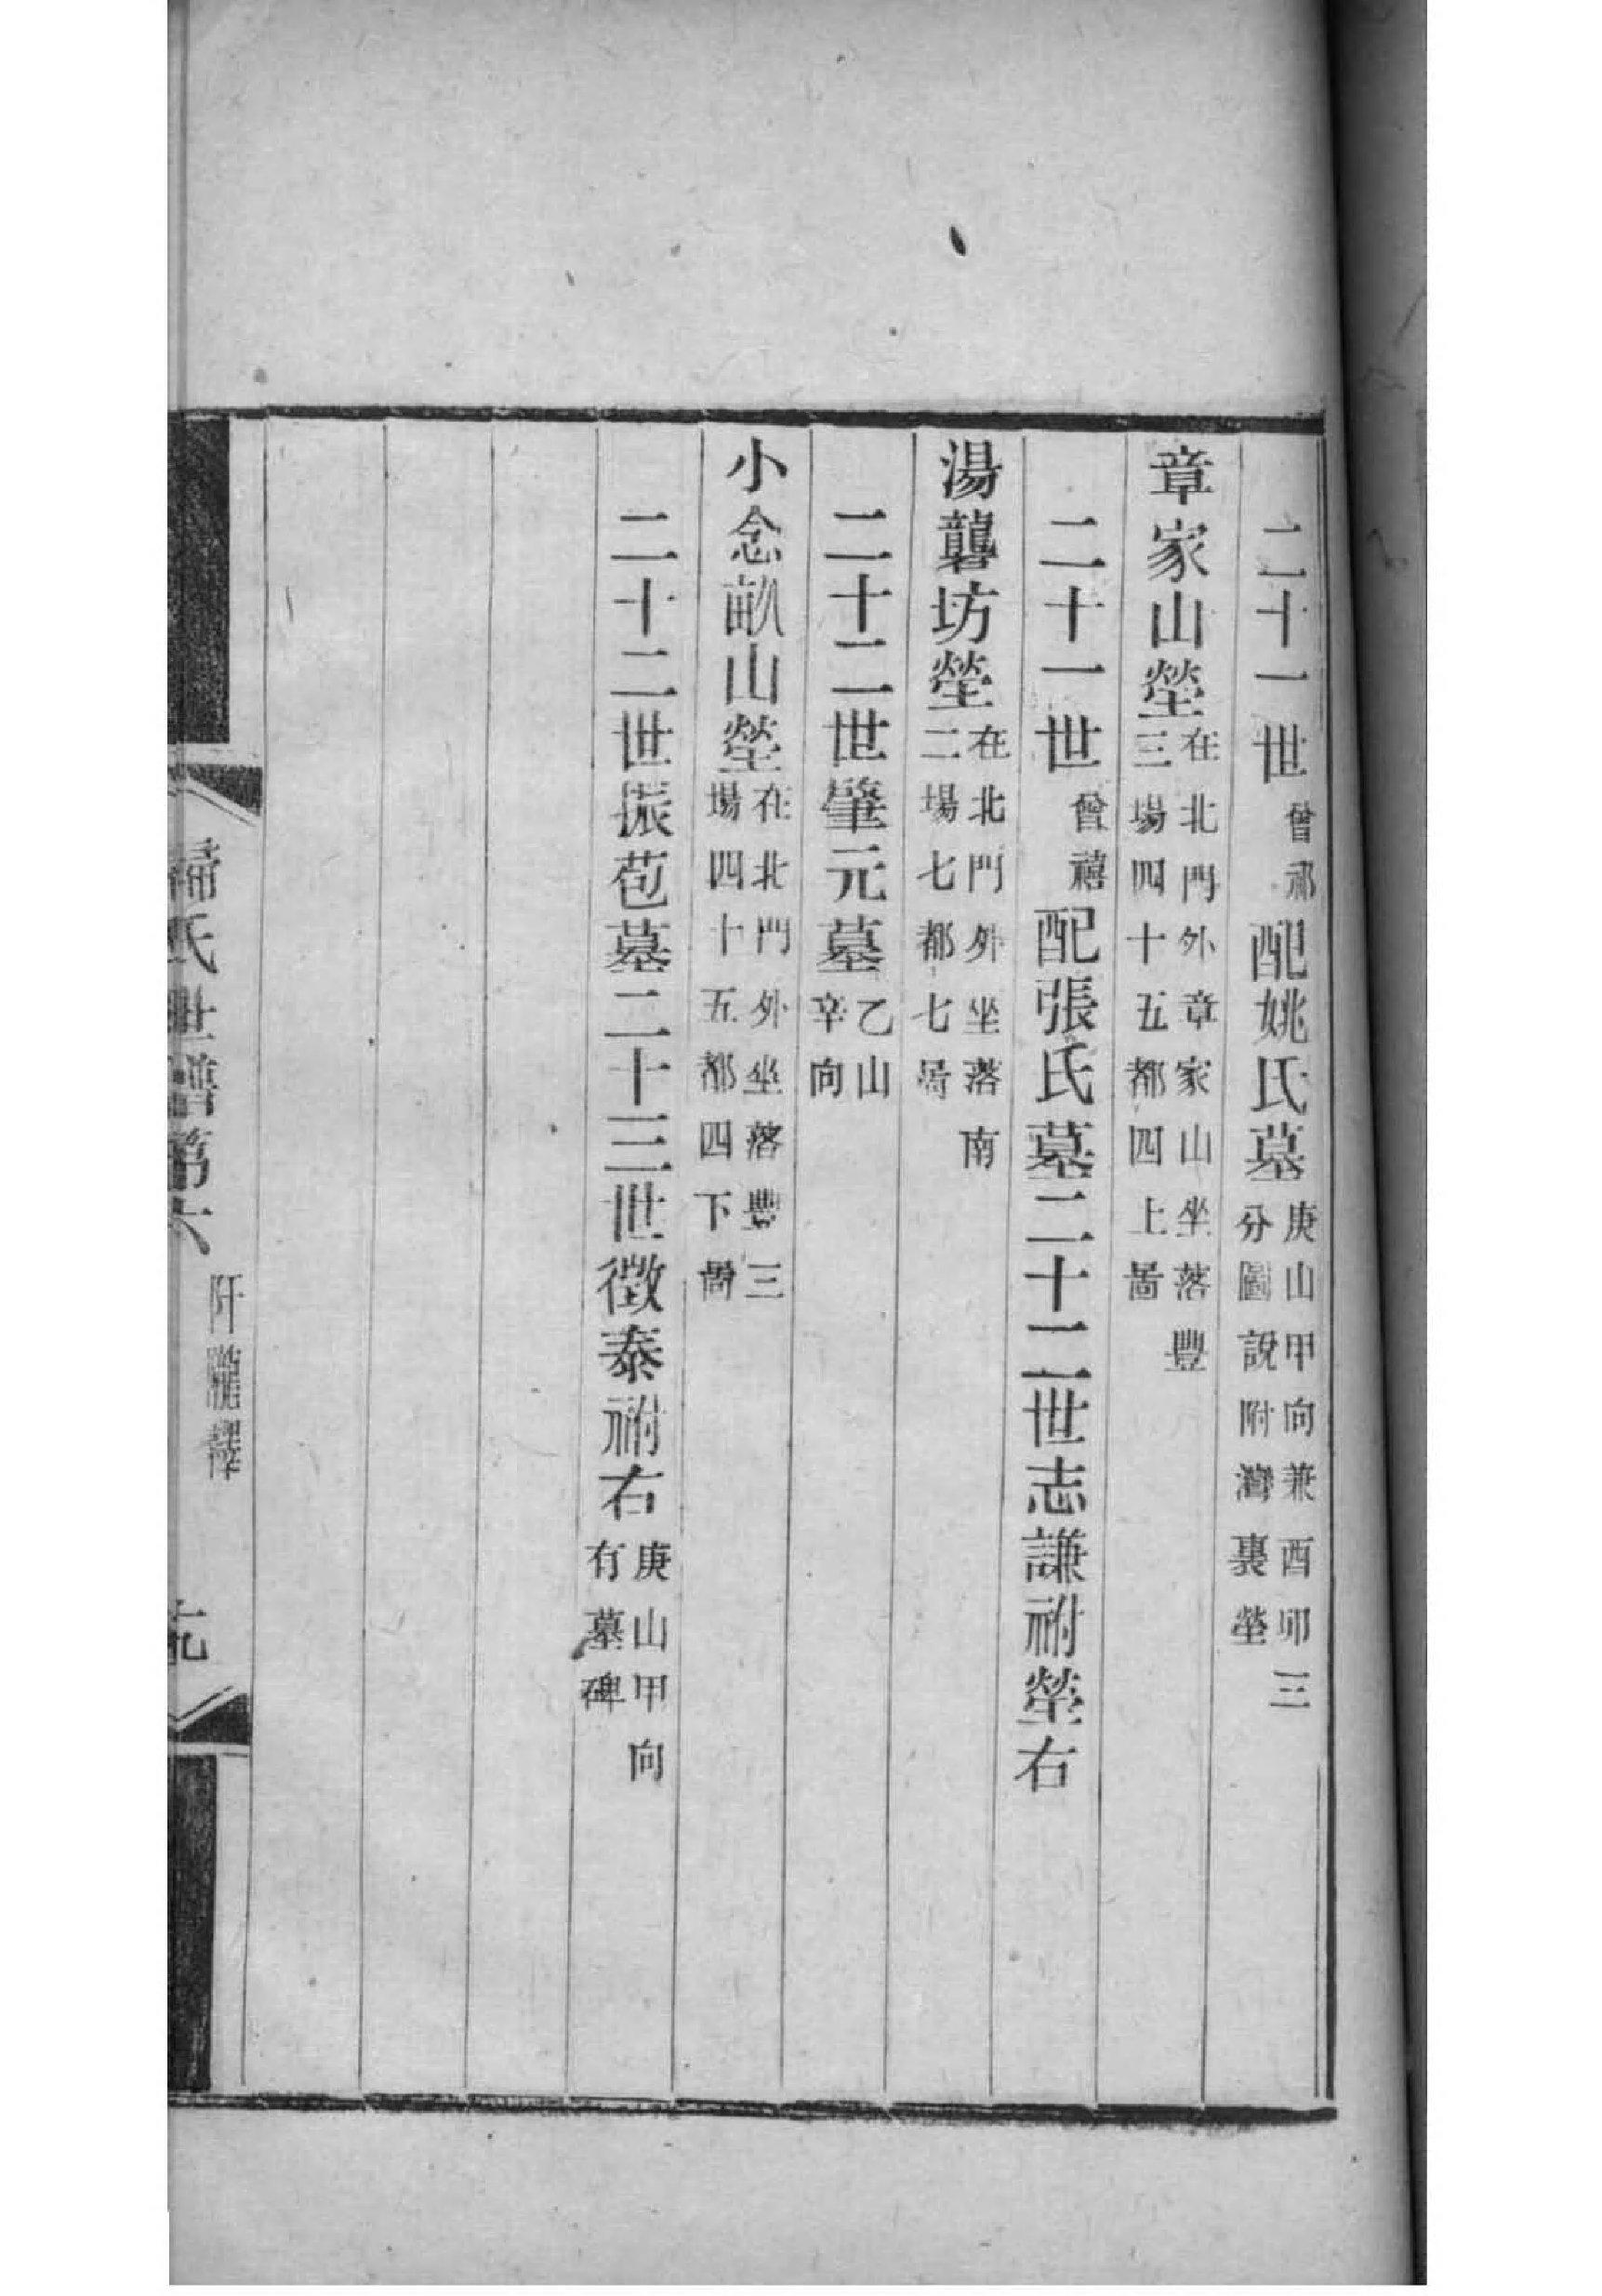 二十一世曾祁配姚氏墓庚山甲向兼酉卯三分圖說附灣裏塋
章家山塋在北門外章家山坐落豐三場四十五都四上啚
二十一世曾禧配張氏墓二十二世志謙祔塋右
湯龔坊塋在北門外坐落南二場七都七啚
二十二世肇元墓乙山辛向
小念畝山塋在北門外坐落豐三場四十五都四下啚
二十二世振苞墓二十三世徵泰祔右庚山甲向有墓碑
歸氏世譜第六 阡隴繹